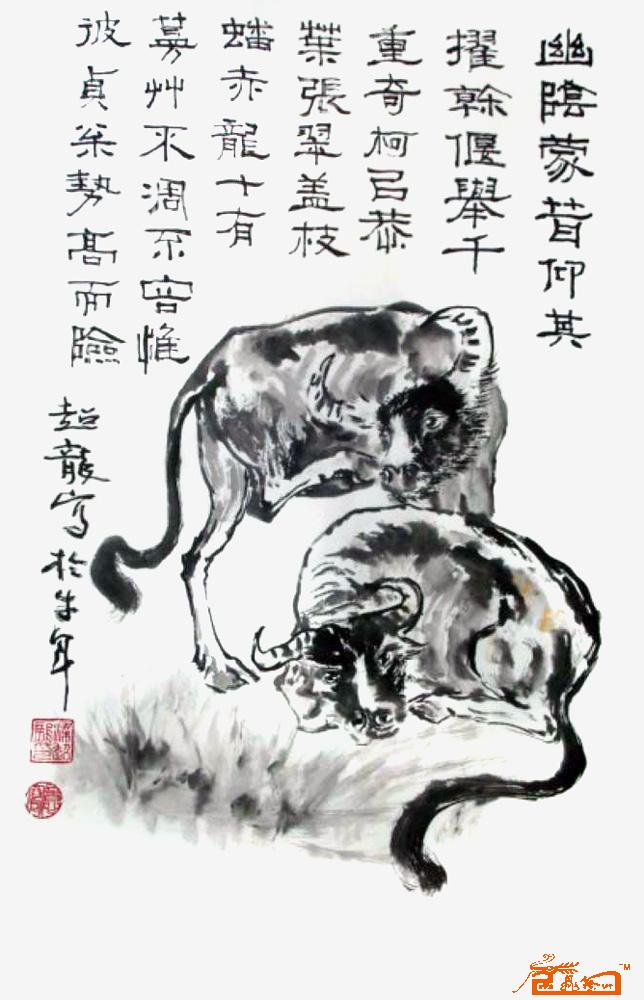 幽陰蒙昔仰其
擢幹偃舉千
重奇柯呂恭
葉張翠盖枝
蟠赤龍十有
募艸不凋不容惟
彼貞柔勢高而險
超龍寫於牛年